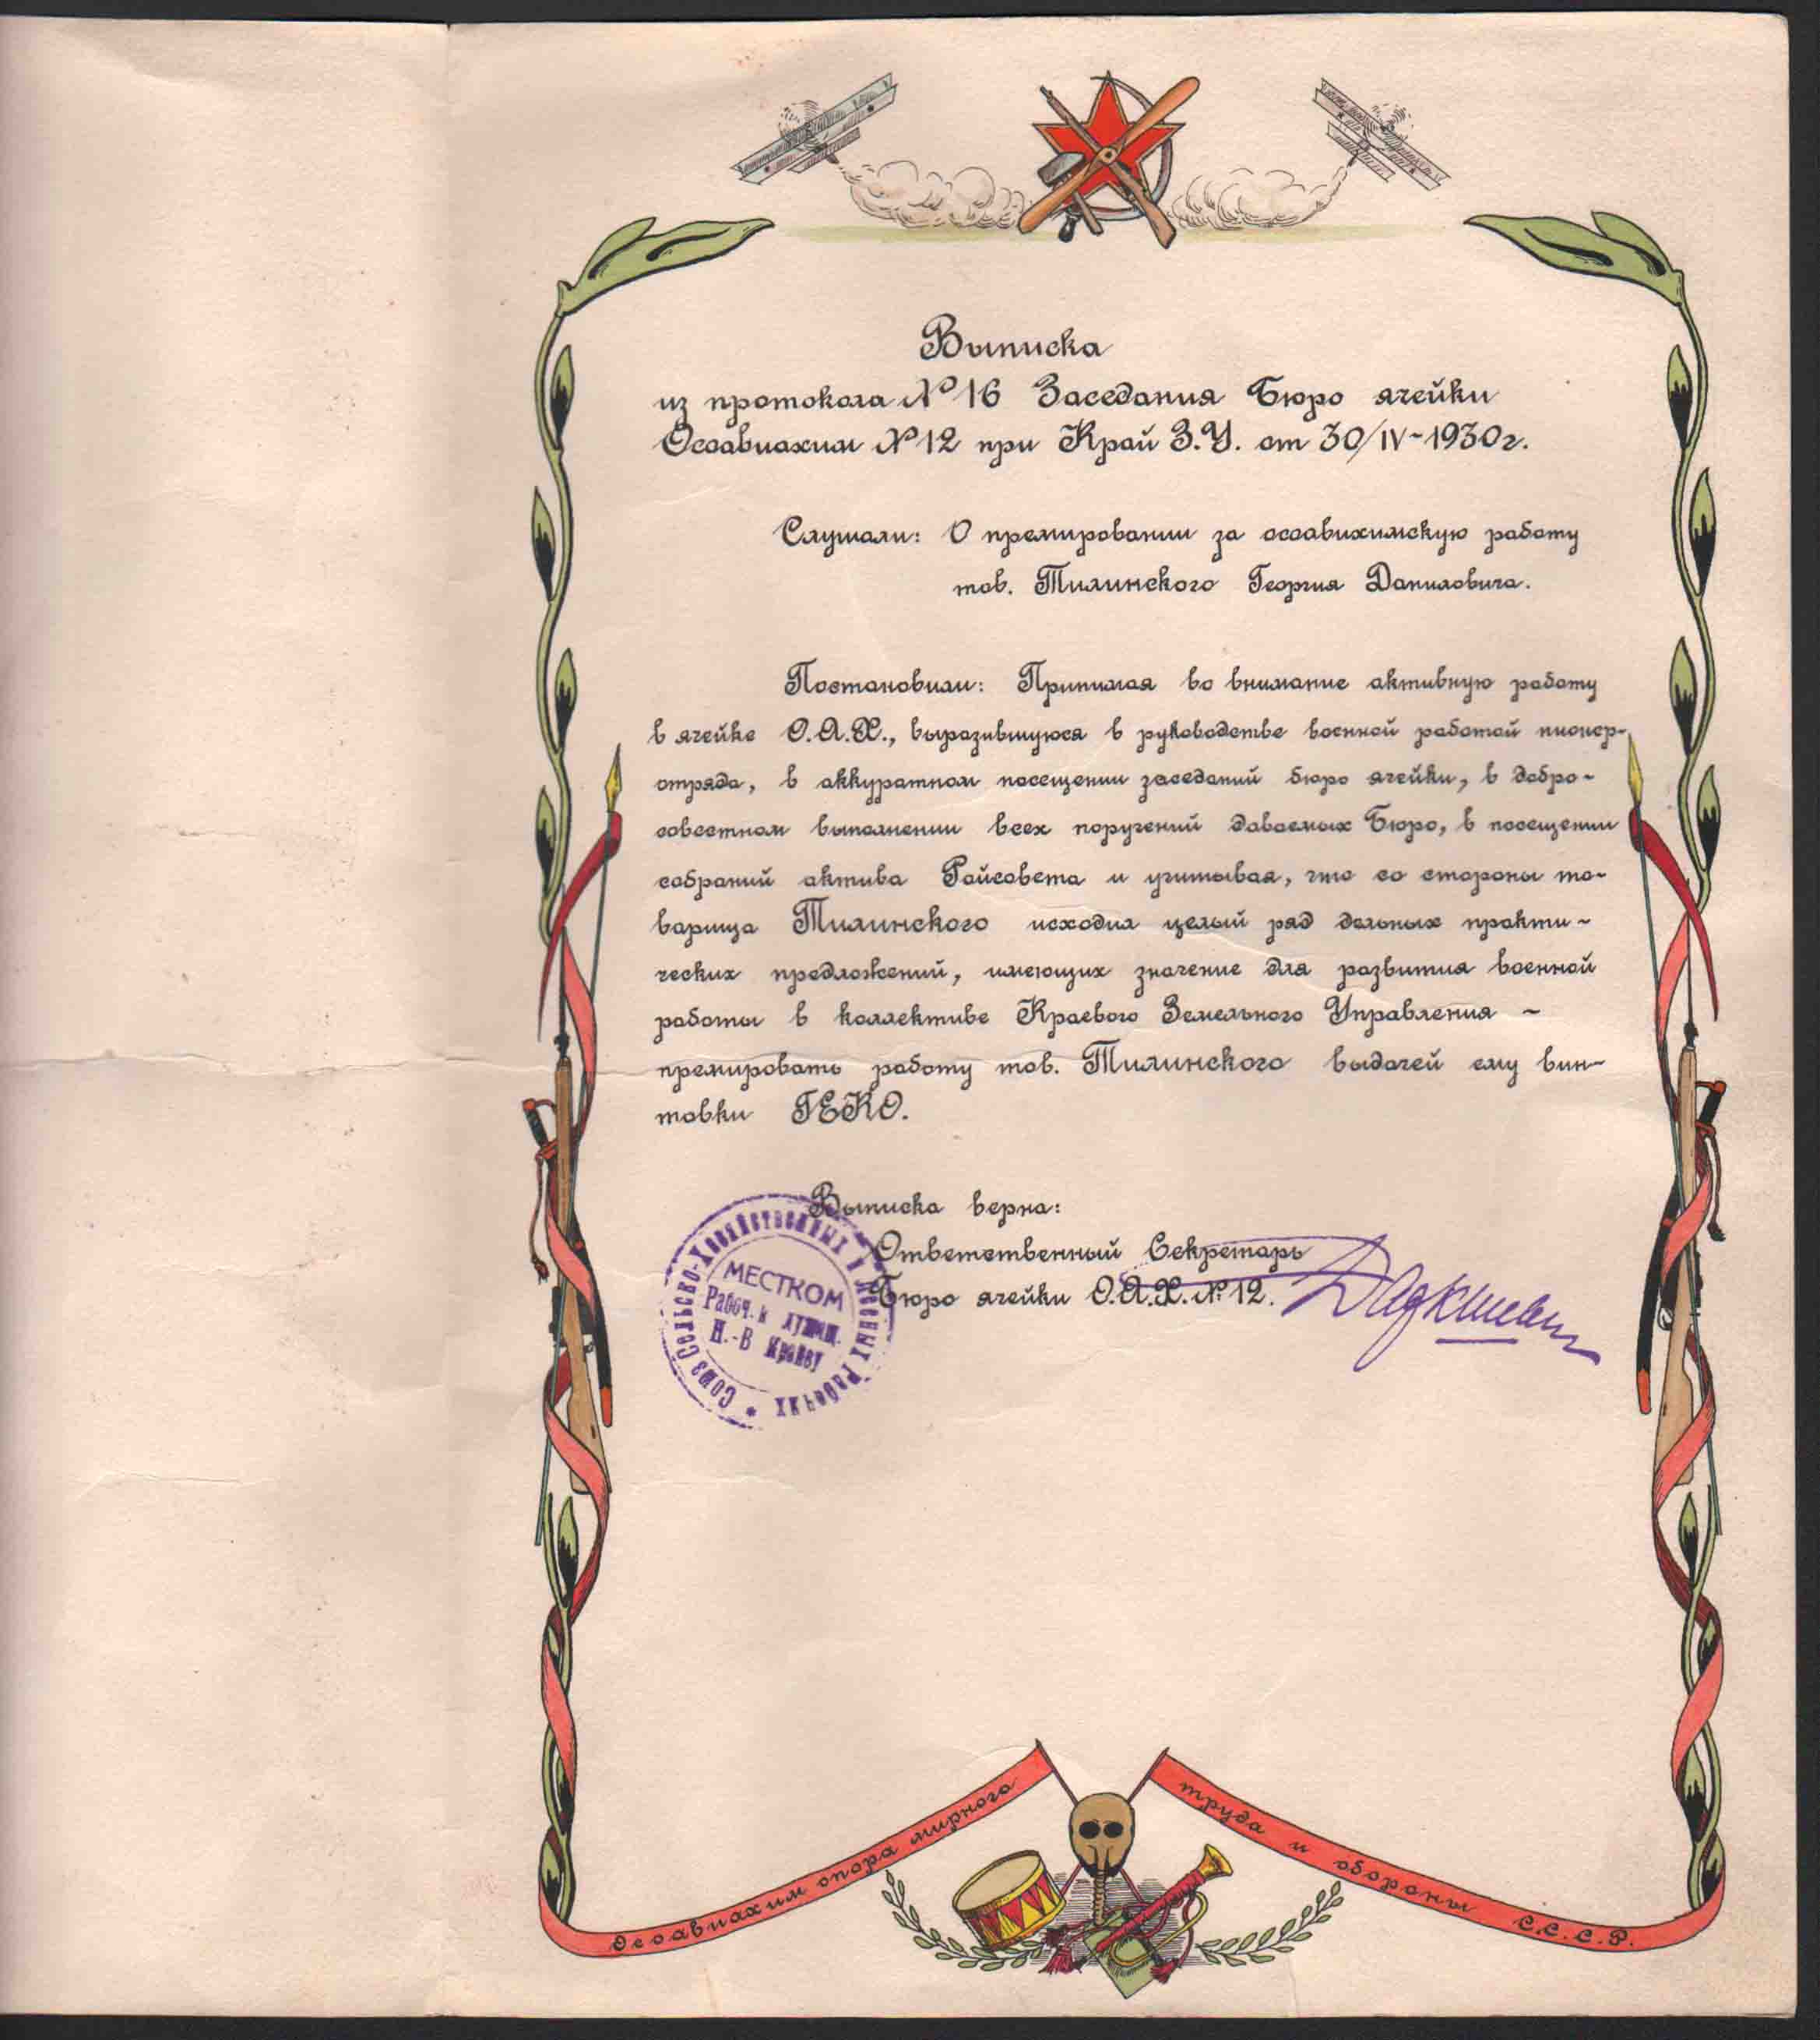 Выписка
из протокола № 16 Заседания Бюро ячейки
Осоавиахим № 12 при Край З.У. от 30/IV-1930г.
Слушали: О премировании за осоавихимскую работу
тов. Тилинского Георгия Даниловича.
Постановили: Принимая во внимание активную работу
в ячейке О.А.Х., выразившуюся в руководстве военной работой пионер-
отряда, в аккуратном посещении заседаний бюро ячейки, в добро-
совестном выполнении всех поручений даваемых Бюро, в посещении
собраний актива Райсовета и учитывая, что со стороны то-
варища Тилинского исходил целый ряд дельных практи-
ческих предложений, имеющих значение для развития военной
работы в коллективе Краевого Земельного Управления -
премировать работу тов. Тилинского выдачей ему вин-
товки ГЕКО.
Выписка верна:
Ответственный Секретарь
Бюро ячейки О.А.Х. № 12.
Союз Сельско-Хозяйственных и Лесных Рабочих
МЕСТКОМ
Рабоч. и служащ.
Н.-В КрайЗУ
Осоавиахим опора мирного
труда и обороны С.С.С.Р.